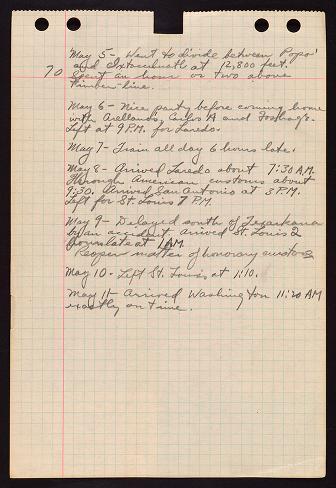 May 5 - Went to divide between Popo'
and Ixtaccihuatl at 12,800 feet.
70 Spent an hour or two above
timber-line.
May 6 - Nice party before coming home
with Arellanos, Carlos A and Foshag's.
Left at 9 P.M. for Laredo.
May 7 - Train all day 6 hours late.
May 8 - Arrived Laredo about 7:30 A.M.
Through American customs about
9:30. Arrived San Antonio at 3 P.M.
Left for St. Louis 7 P.M.
May 9 - Delayed south of Texarkana
by an accident arrived St. Louis 2
hours late at 1 AM.
Reopen matter of honorary
May 10 - Left St. Louis at 1:10.
May 11 - Arrived Washington 11:20 AM
exactly on time.